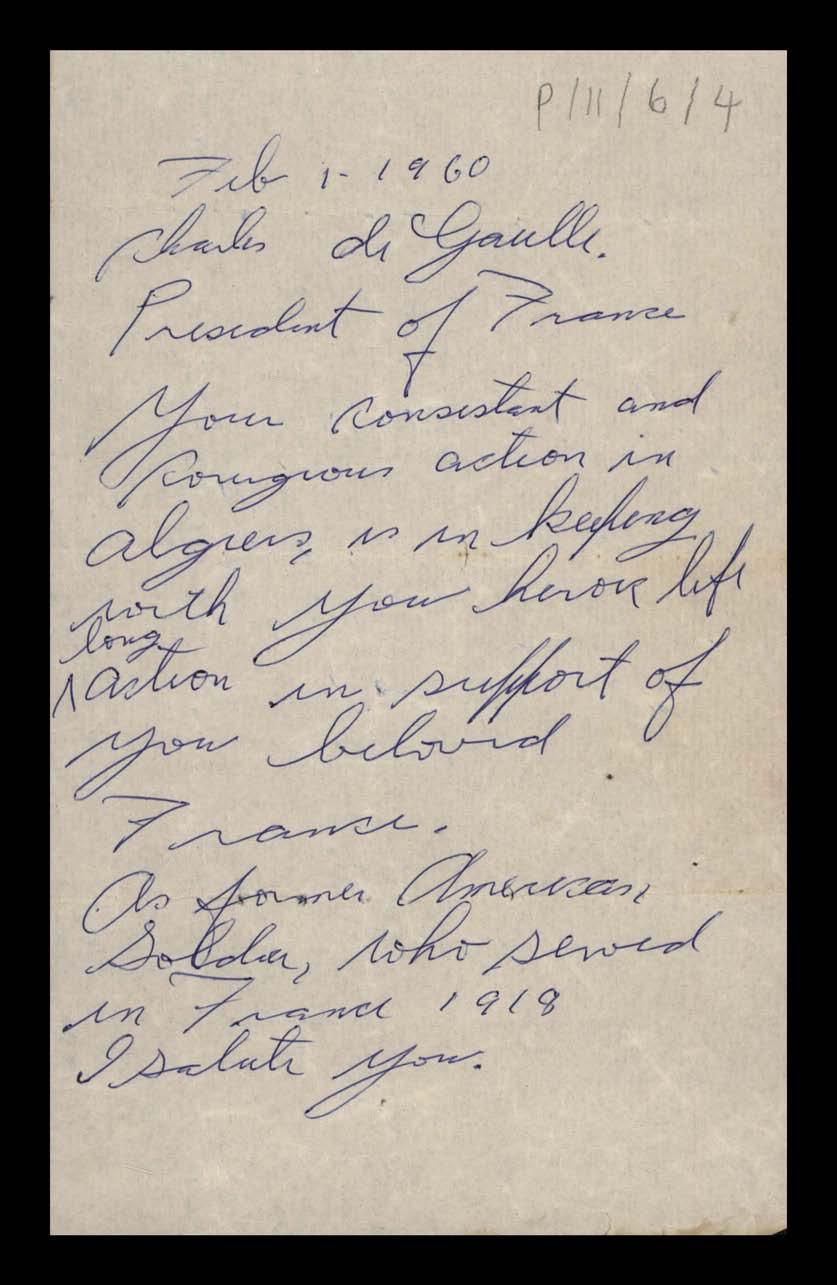 P/11/6/4
Feb 1- 1960
Charles de Gaulle.
President of France
Your consistant and
courigious action in
Algiers, is in keeping
with your heroic life
long
action in support of
your beloved
France.
As former American,
Soldier, who served
in France 1918
I salute you.